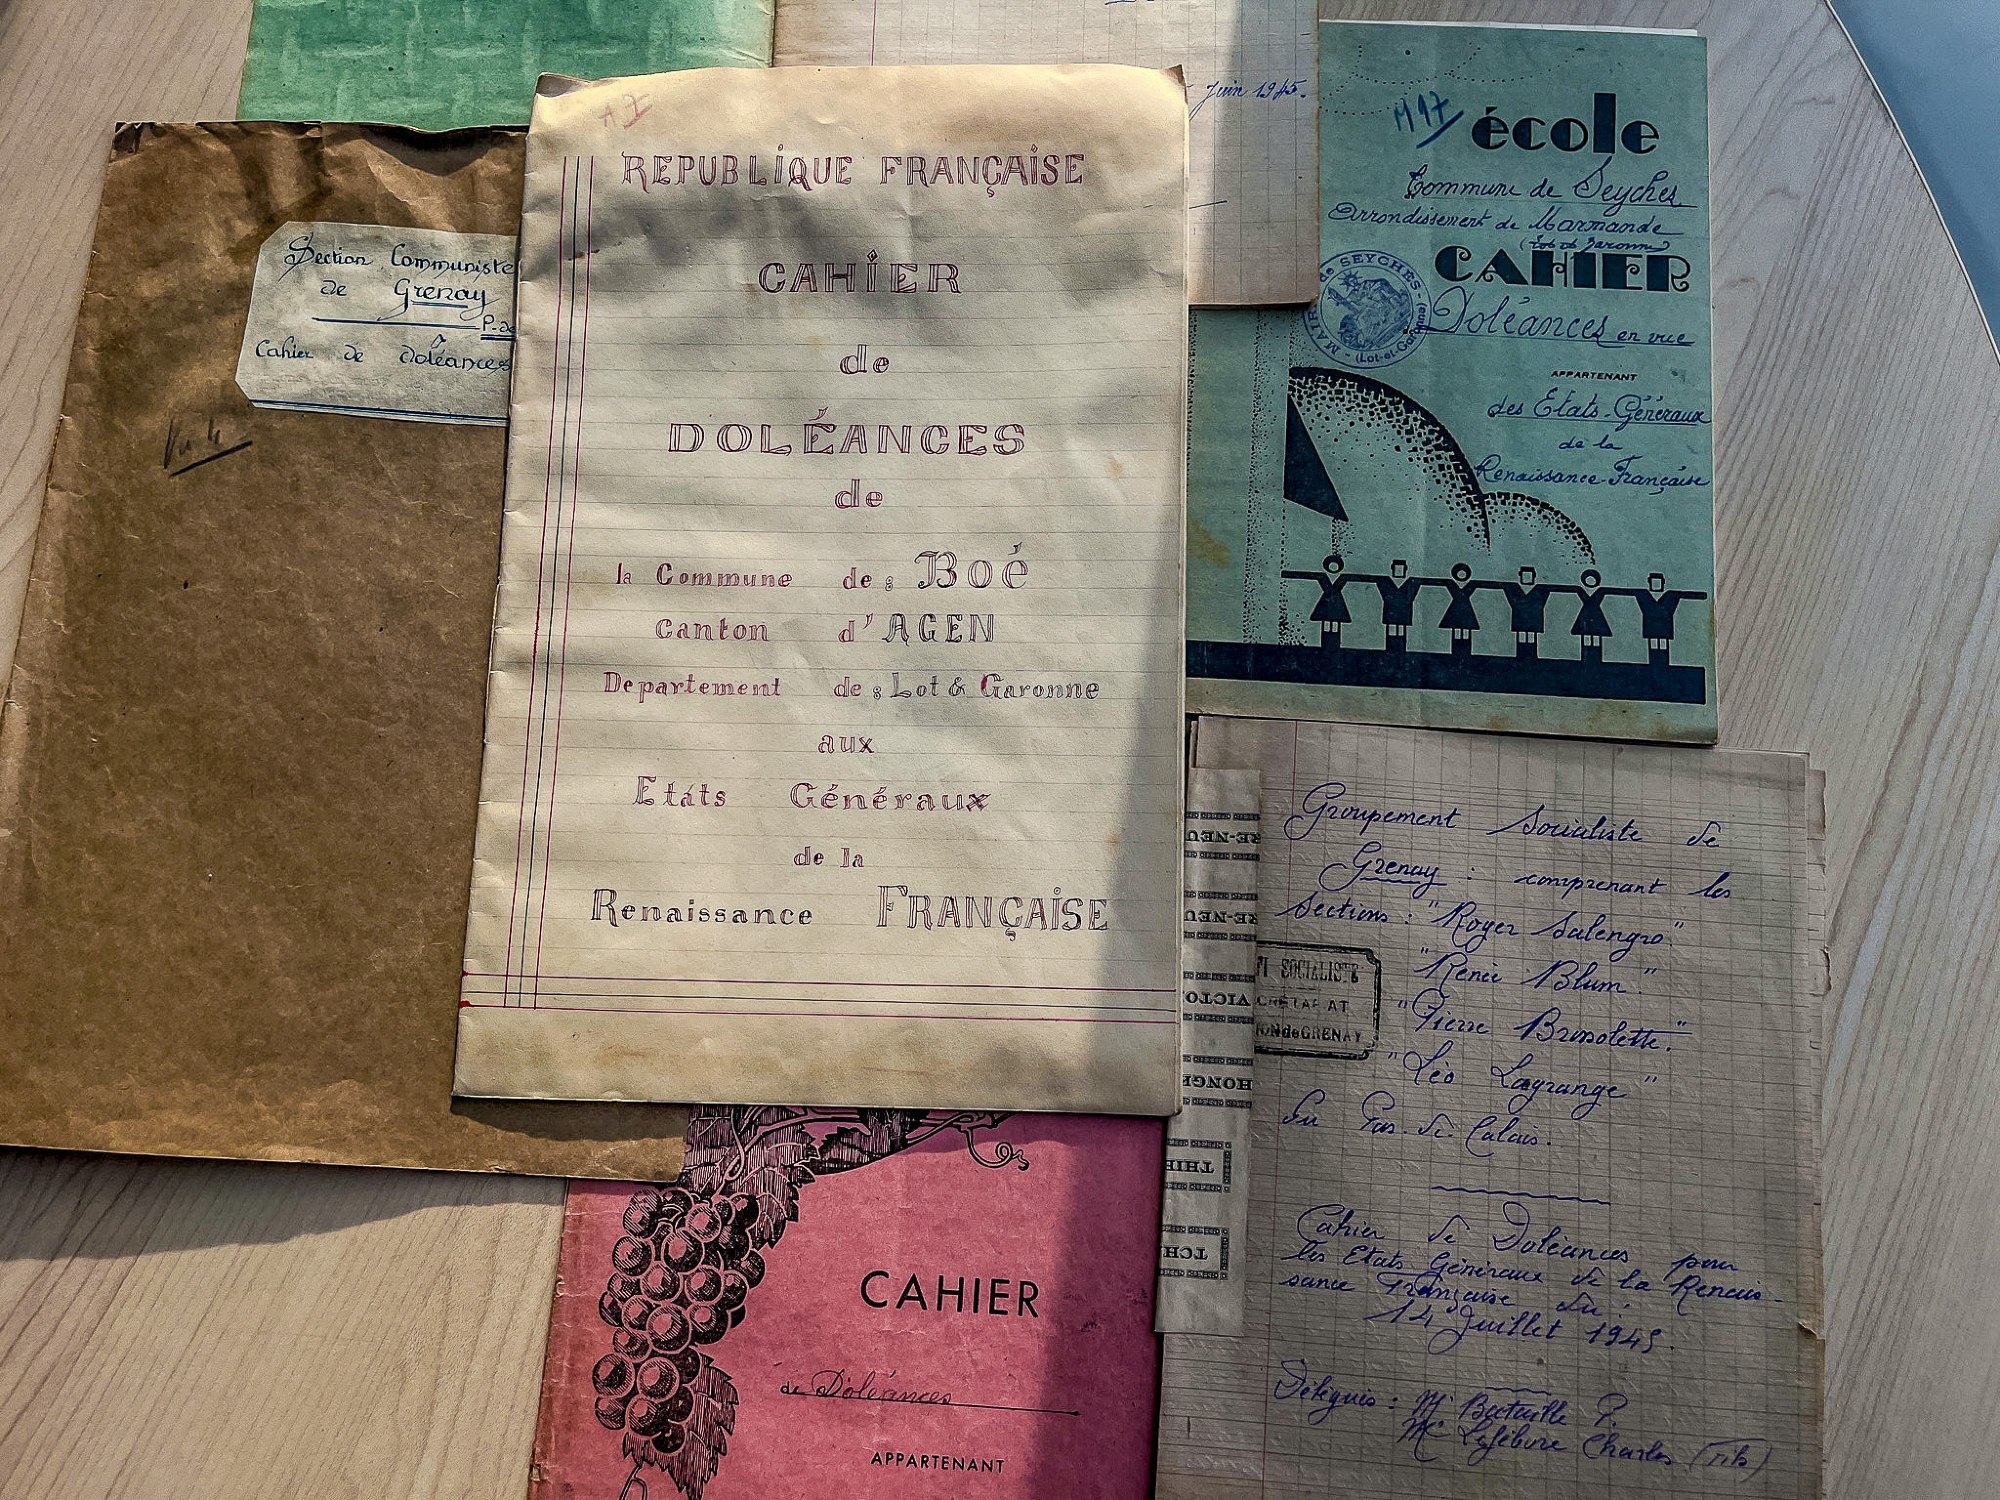 Juin 1945.
Section Communiste
de Grenay
P. de
Cahier de doléances
A 7
REPUBLIQUE FRANÇAISE
CAHIER
de
DOLÉANCES
de
la Commune de : Boé
Canton d'AGEN
Departement de : Lot & Garonne
aux
Etats Généraux
de la
Renaissance FRANÇAISE
M 17
école
Commune de Seyches
Arrondissement de Marmande
(Lot et Garonne)
CAHIER
Doléances en vue
APPARTENANT
des Etats-Généraux
de la
Renaissance-Française
MAIRIE de SEYCHES - (Lot-et-Garonne)
Groupement Socialiste de
Grenay : comprenant les
Sections : "Roger Salengro"
"Renée Blum".
"Pierre Brossolette".
"Léo Lagrange"
du Pas-de-Calais.
TI SOCIALISTE
CRÉTARIAT
ION de GRENAY
Cahier de Doléances pour
les Etats Généraux de la Renais-
sance Française du :
14 Juillet 1945.
Délégués : Mr Bataille P.
Mr Lefebvre Charles
RE-NEU
RE-NEU
VICTO
HONGR
THIE
TCH
CAHIER
de Doléances
APPARTENANT